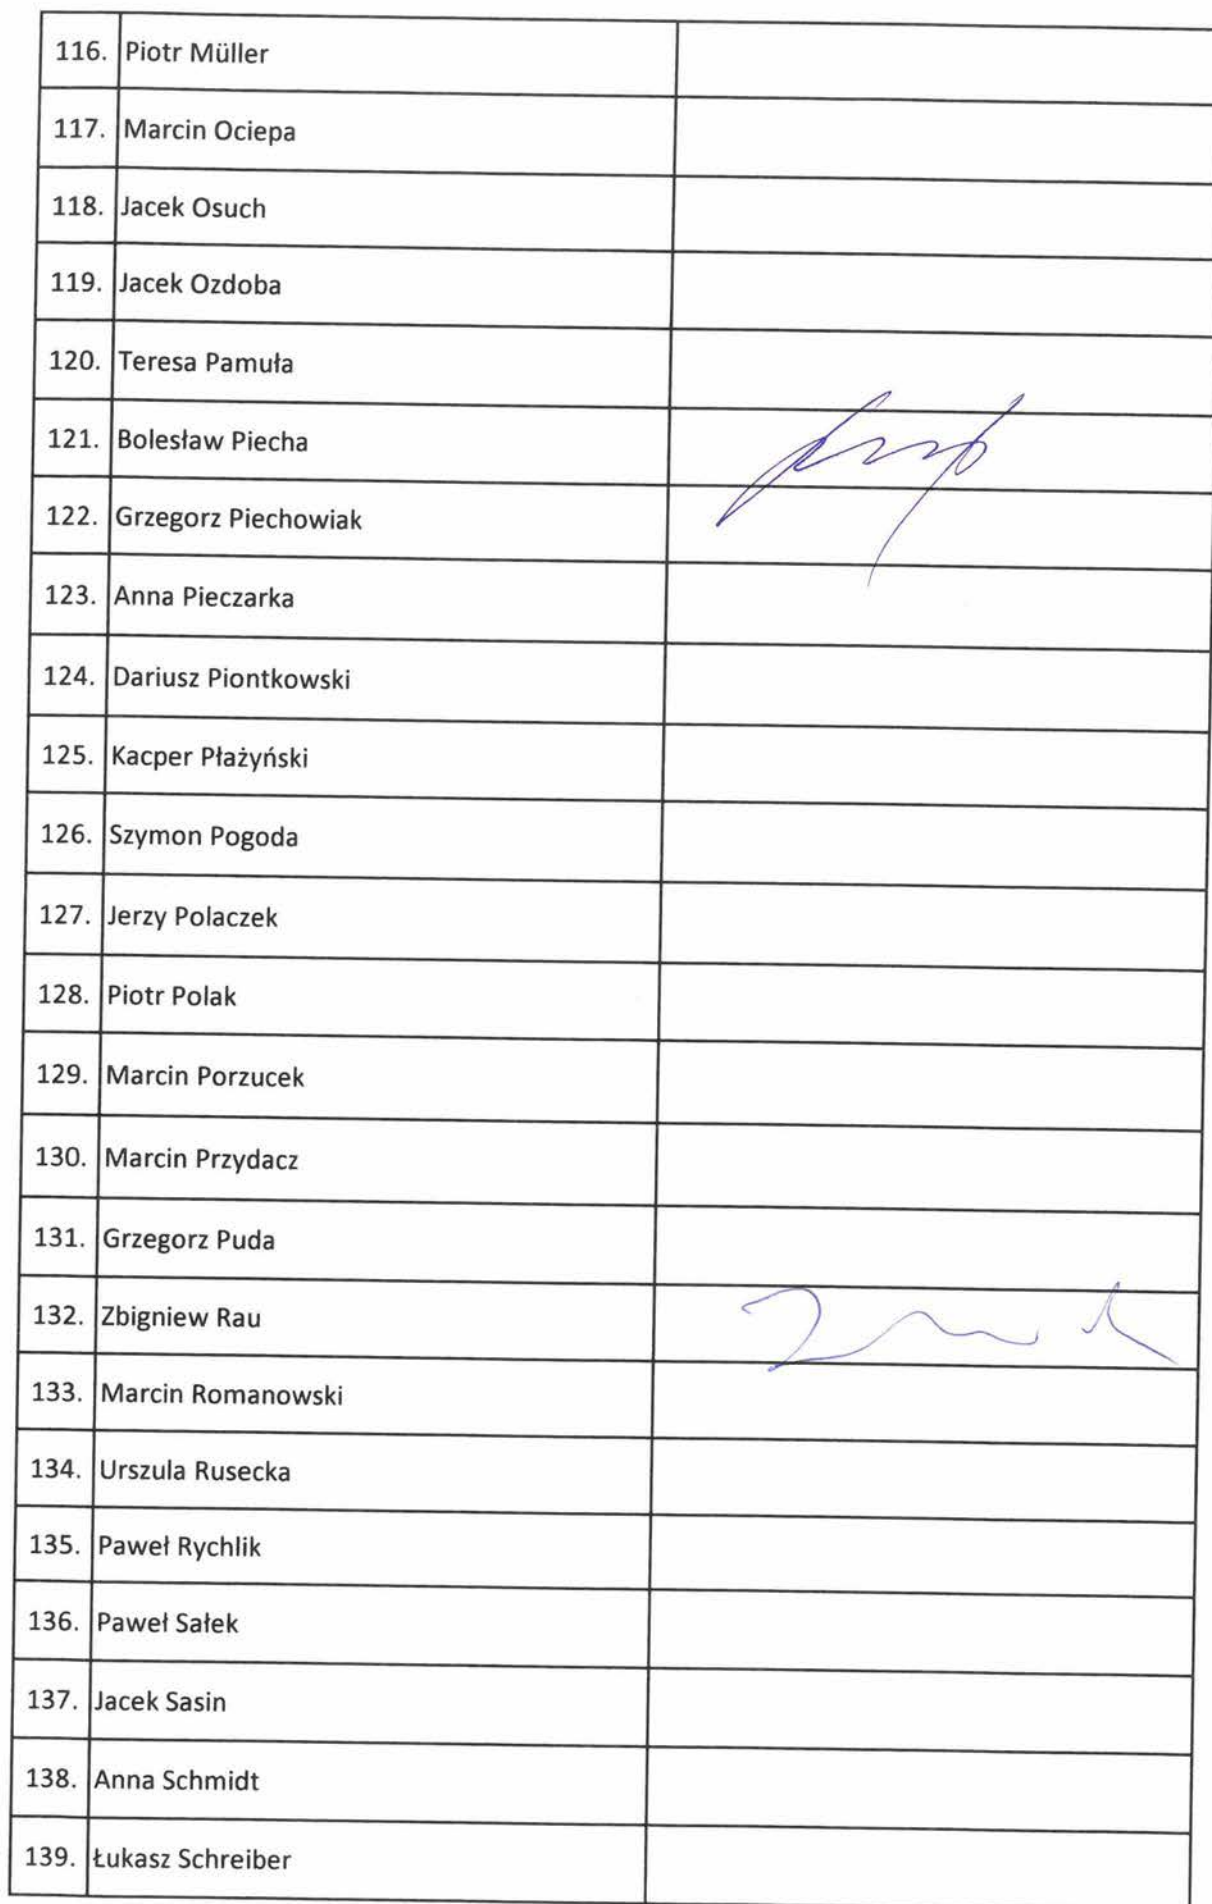 116. Piotr Müller
117. Marcin Ociepa
118. Jacek Osuch
119. Jacek Ozdoba
120. Teresa Pamuła
121. Bolesław Piecha
122. Grzegorz Piechowiak
123. Anna Pieczarka
124. Dariusz Piontkowski
125. Kacper Płażyński
126. Szymon Pogoda
127. Jerzy Polaczek
128. Piotr Polak
129. Marcin Porzucek
130. Marcin Przydacz
131. Grzegorz Puda
132. Zbigniew Rau
133. Marcin Romanowski
134. Urszula Rusecka
135. Paweł Rychlik
136. Paweł Sałek
137. Jacek Sasin
138. Anna Schmidt
139. Łukasz Schreiber